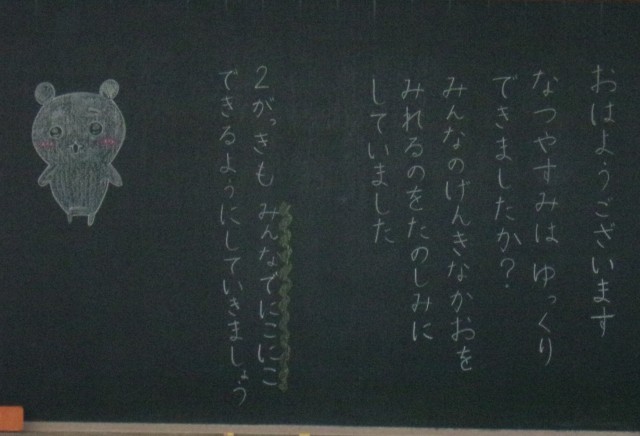 おはようございます
なつやすみは ゆっくり
できましたか?
みんなのげんきなかおを
みれるのをたのしみに
していました
2がっきも みんなでにこにこ
できるようにしていきましょう